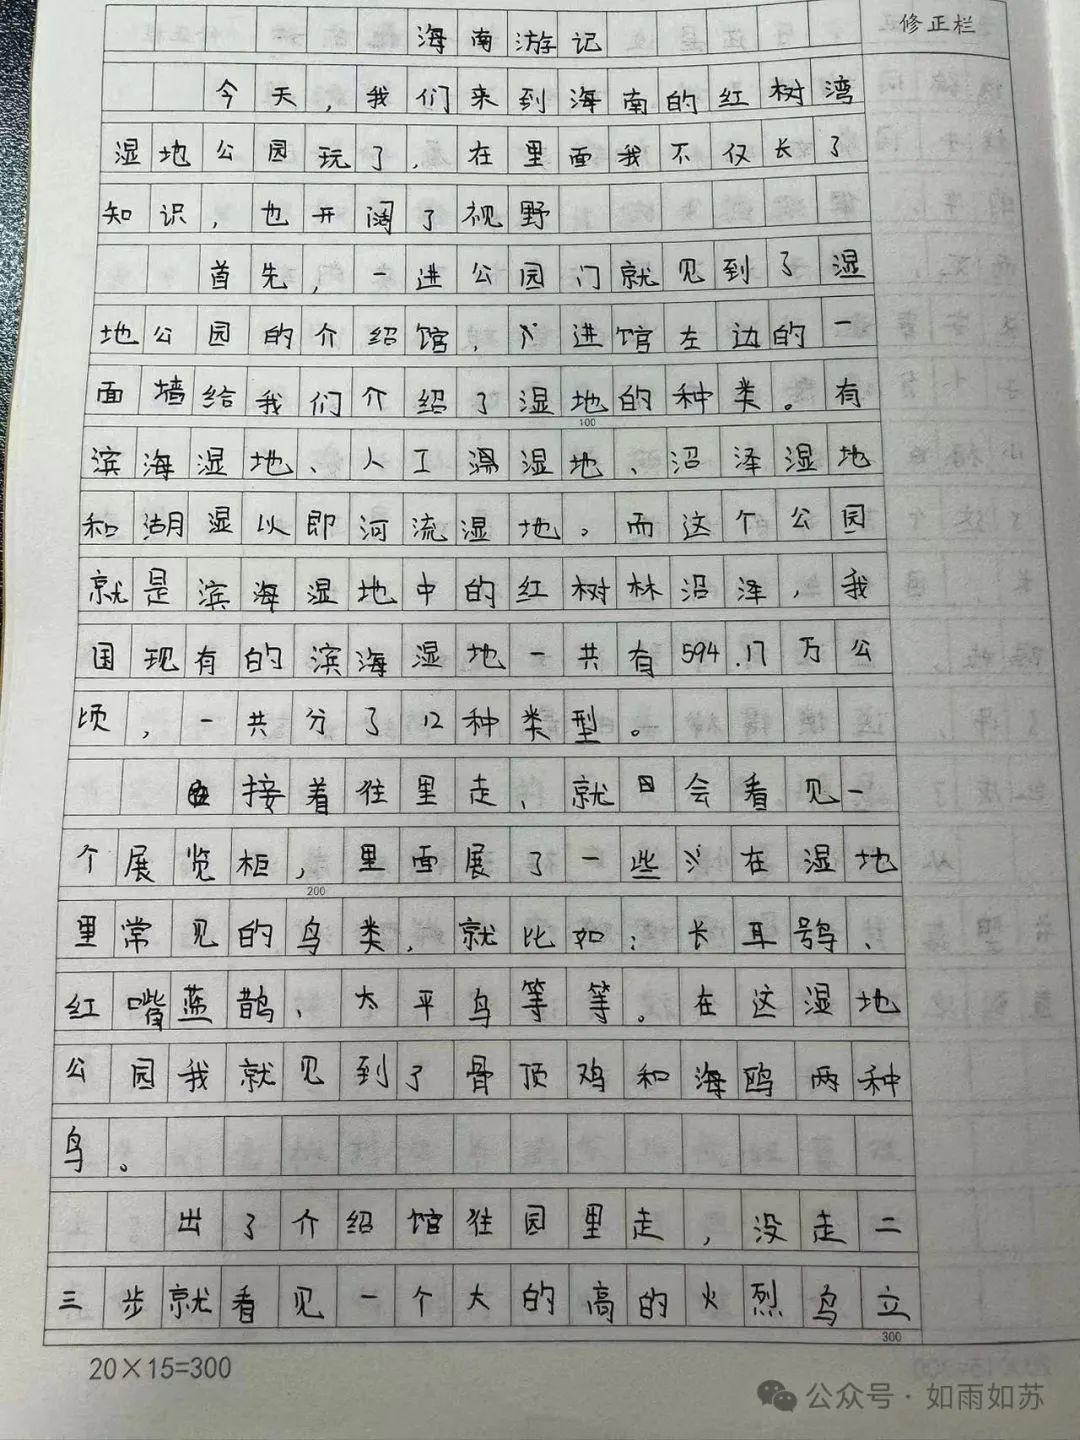 海南游记
修正栏
今天，我们来到海南的红树湾
湿地公园玩了，在里面我不仅长了
知识，也开阔了视野
首先，一进公园门就见到了湿
地公园的介绍馆，进馆左边的一
面墙给我们介绍了湿地的种类。有
100
滨海湿地、人工湿地、沼泽湿地
和湖湿以即河流湿地。而这个公园
就是滨海湿地中的红树林沼泽，我
国现有的滨海湿地一共有594.17万公
顷，一共分了12种类型。
接着往里走，就会看见一
个展览柜，里面展了一些在湿地
200
里常见的鸟类，就比如：长耳鸮、
红嘴蓝鹊、太平鸟等等。在这湿地
公园我就见到了骨顶鸡和海鸥两种
鸟。
出了介绍馆往园里走，没走二
三步就看见一个大的高的火烈鸟立
300
20×15=300
公众号·如雨如苏